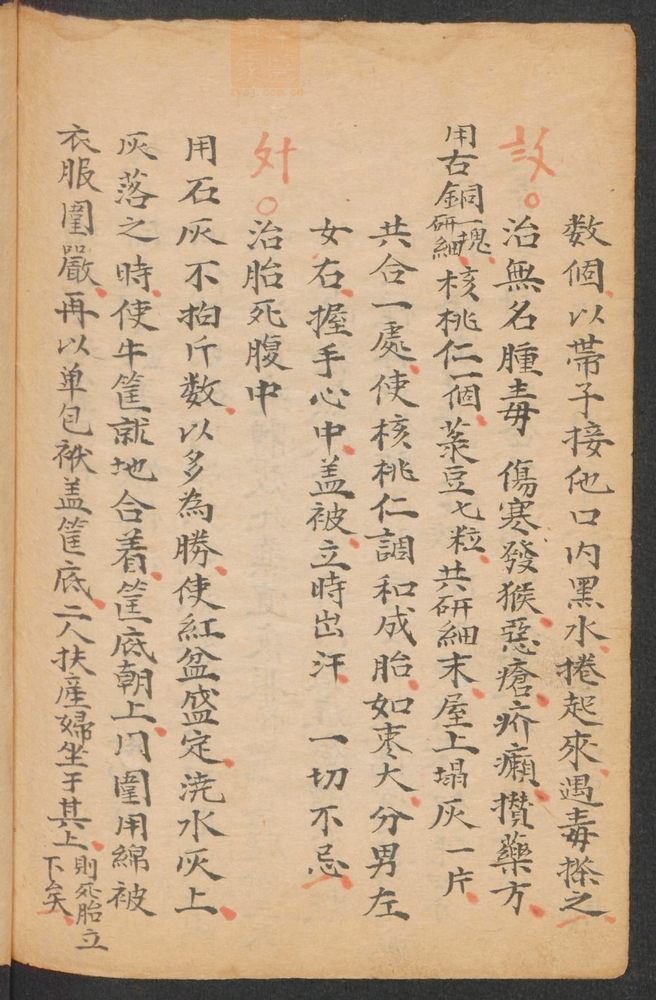 数個以帶子接他口内黑水捲起來遇毒搽之
○治無名腫毒 傷寒發猴惡瘡疥癩攅藥方
用古銅一塊研細核桃仁一個菉豆七粒共研細末屋上塌灰一片
共合一處使核桃仁調和成胎如枣大分男左
女右握手心中盖被立時岀汗 一切不忌
外○治胎死腹中
用石灰不拍斤数以多為勝使紅盆盛定澆水灰上
灰落之時使牛筐就地合着筐底朝上周圍用綿被
衣服圍嚴再以单包袱盖筐底二人扶產婦坐于其上則死胎立下矣